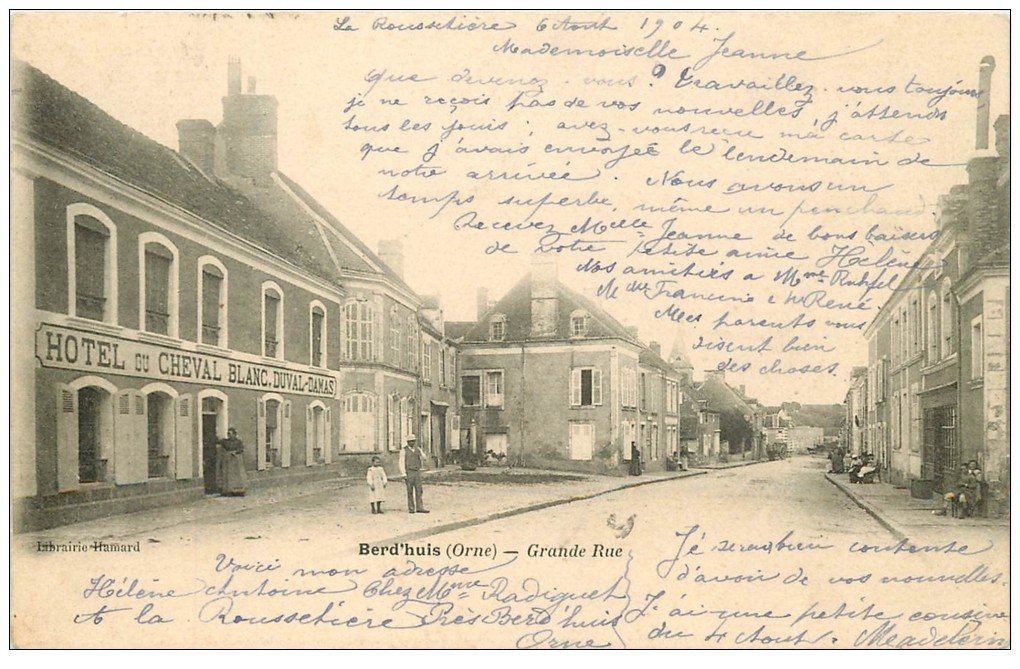 La Roussetière 6 Aout 1904.
Mademoiselle Jeanne
Que devenez-vous? Travaillez-vous toujours
je ne reçois pas de vos nouvelles, j'attends
tous les jours; avez-vous reçu ma carte
que j'avais envoyée le lendemain de
notre arrivée. Nous avons un
temps superbe, même un peu chaud
Recevez Melle Jeanne de bons baisers
de votre petite amie Hélène
Nos amitiés a Mme
Mlle Francine & Mr René
Mes parents vous
disent bien
des choses.
HOTEL DU CHEVAL BLANC, DUVAL-DAMAS
Librairie Hamard
Berd'huis (Orne) — Grande Rue
Voici mon adresse
Hélène Antoine Chez Mme Radiguet
A la Roussetière Près Berd'huis
Orne
Je serai bien contente
d'avoir de vos nouvelles.
J'ai une petite cousine
du 4 Aout. Madeleine